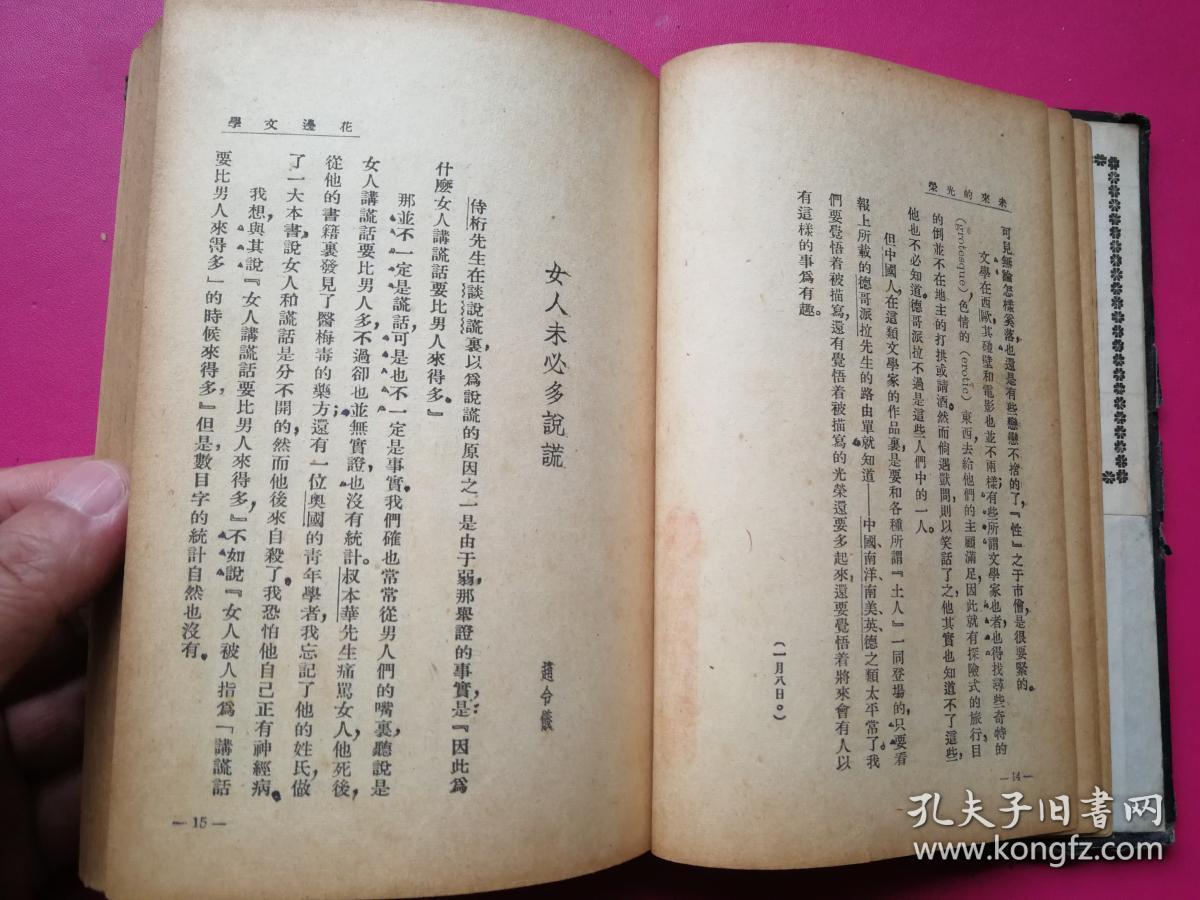 未來的光榮
可見無論怎樣奚落也還是有些戀戀不捨的了，『性』之于市儈，是很要緊的。
文學在西歐，其碰壁和電影也並不兩樣；有些所謂文學家也者，也得找尋些奇特的
(grotesque)，色情的(erotic)東西，去給他們的主顧滿足，因此就有探險式的旅行，目
的倒並不在地主的打拱或請酒。然而倘遇獃問，則以笑話了之，他其實也知道不了這些，
他也不必知道。德哥派拉不過是這些人們中的一人。
但中國人，在這類文學家的作品裏，是要和各種所謂『土人』一同登場的，只要看
報上所載的德哥派拉先生的路由單就知道——中國，南洋，南美。英，德之類太平常了。我
們要覺悟着被描寫，還有覺悟着被描寫的光榮還要多起來，還要覺悟着將來會有人以
有這樣的事爲有趣。
(一月八日。)
—14—
花邊文學
女人未必多說謊
趙令儀
侍桁先生在談說謊裏，以爲說謊的原因之一是由于弱，那舉證的事實，是：『因此爲
什麼女人講謊話要比男人來得多。』
那並不一定是謊話，可是也不一定是事實。我們確也常常從男人們的嘴裏聽說是
女人講謊話要比男人多，不過卻也並無實證，也沒有統計。叔本華先生痛罵女人，他死後，
從他的書籍裏發見了醫梅毒的藥方；還有一位奧國的青年學者，我忘記了他的姓氏，做
了一大本書，說女人和謊話是分不開的，然而他後來自殺了。我恐怕他自己正有神經病。
我想，與其說『女人講謊話要比男人來得多』，不如說『女人被人指爲「講謊話
要比男人來得多」的時候來得多』，但是，數目字的統計自然也沒有。
—15—
孔夫子旧书网
www.kongfz.com